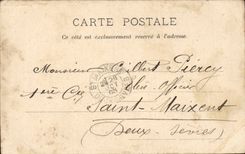 CARTE POSTALE
Ce côté est exclusivement réservé à l'adresse.
Monsieur Gilbert Piercy
Elève Officier
1ère Cie
Saint-Maixent
(Deux-Sèvres)